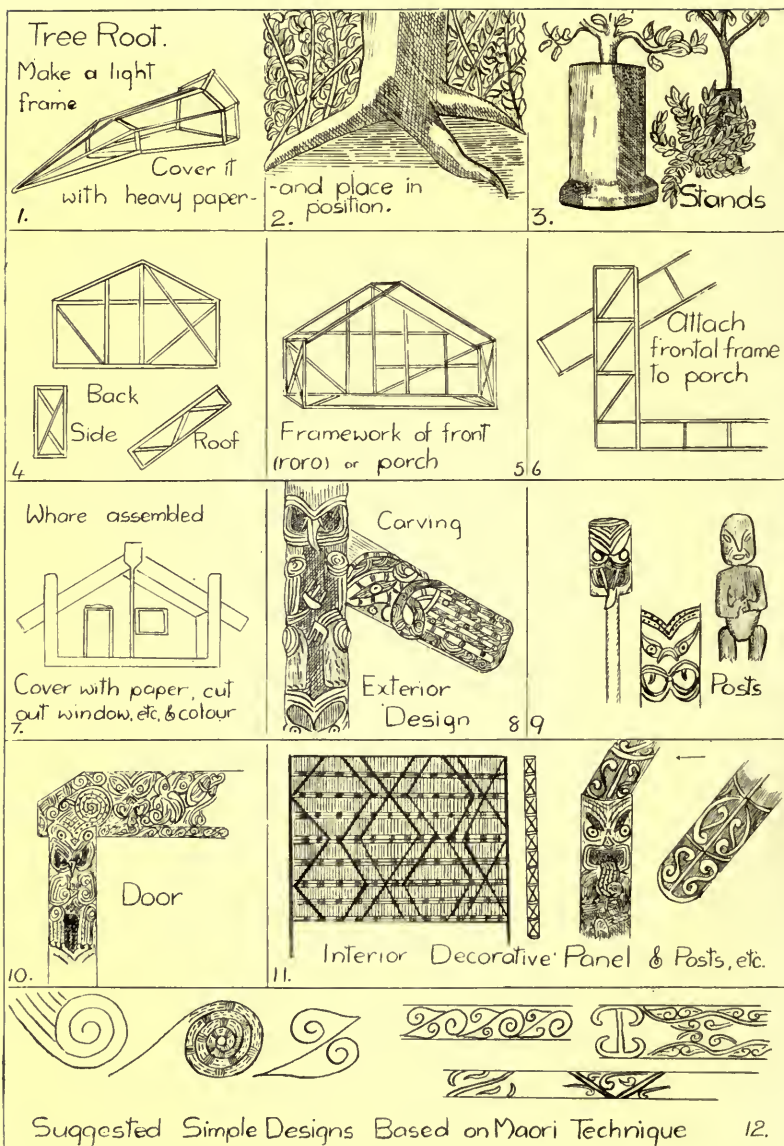 Tree Root.
Make a light
frame
Cover it
with heavy paper-
1.
-and place in
position.
2.
Stands
3.
Back
Side
Roof
4
Framework of front
(roro) or porch
5
Attach
frontal frame
to porch
6
Whare assembled
Cover with paper, cut
out window, etc, & colour
7.
Carving
Exterior
Design
8
Posts
9
Door
10.
Interior Decorative Panel & Posts, etc.
11.
Suggested Simple Designs Based on Maori Technique
12.